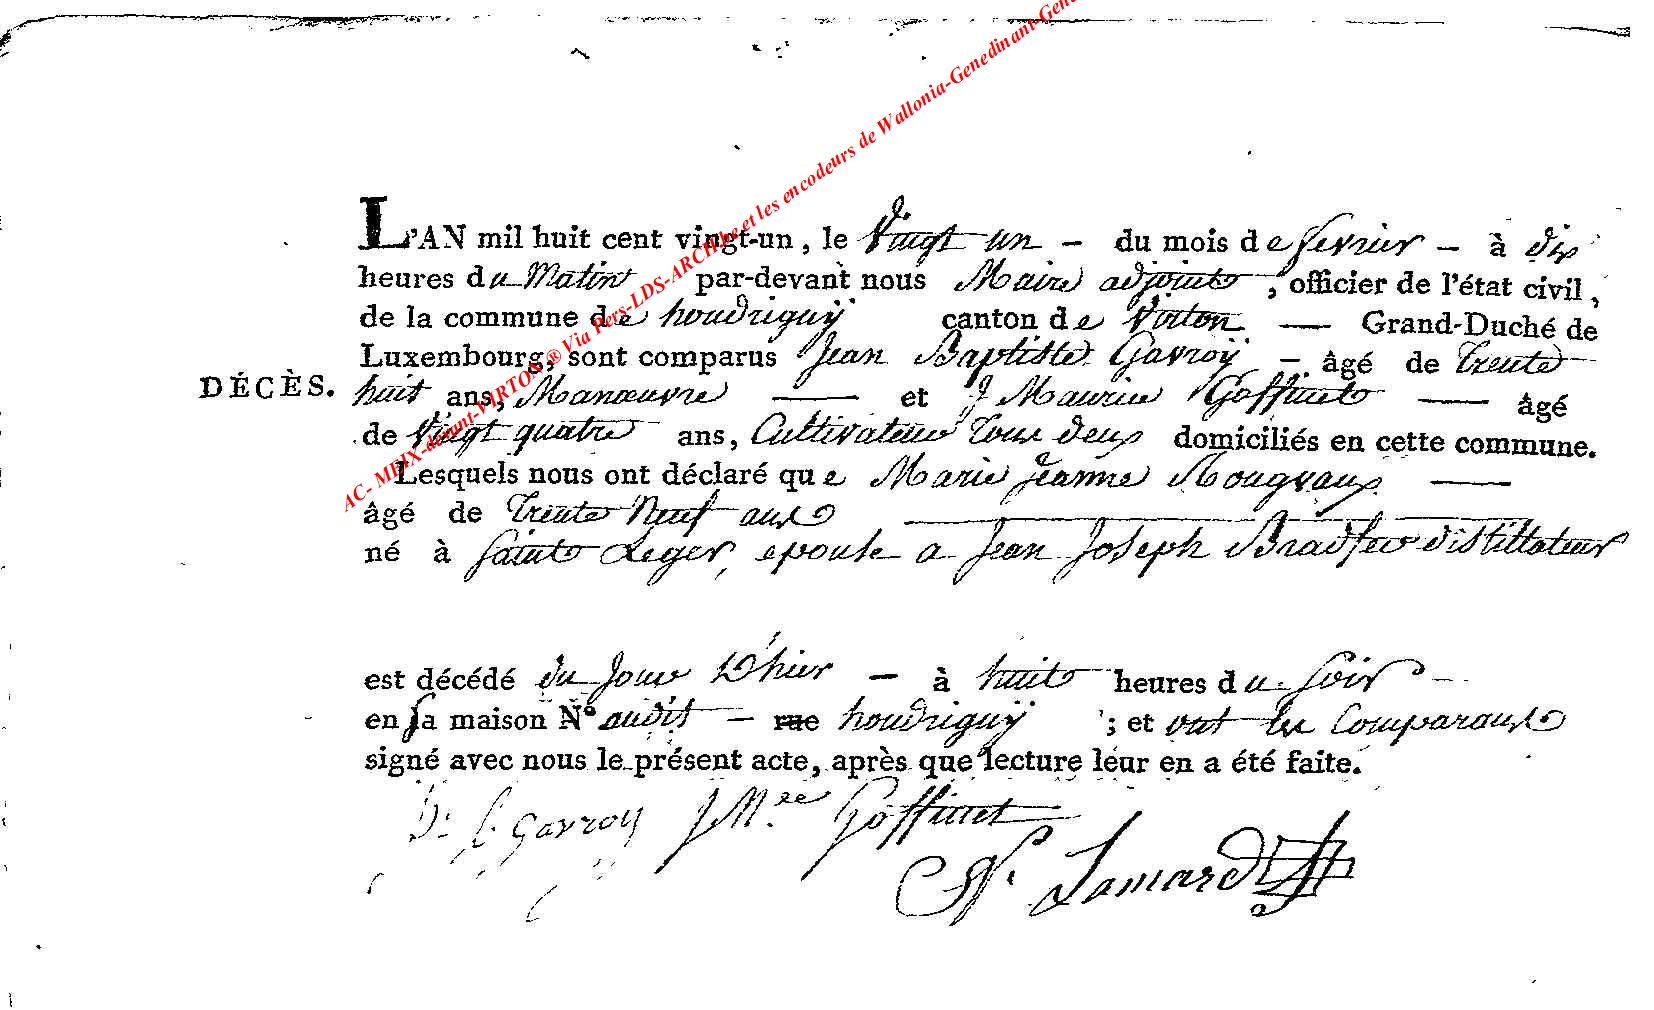 L'AN mil huit cent vingt-un, le Vingt un – du mois de fevrier – à dix
heures du Matin par-devant nous Maire adjoint, officier de l'état civil,
de la commune de houdriguÿ canton de Virton — Grand-Duché de
Luxembourg, sont comparus Jean Baptiste Gavroÿ – âgé de Trente
DÉCÈS.
huit ans, Manœuvre — et J Maurice Goffinet — âgé
de Vingt quatre ans, Cultivateur Tous deux domiciliés en cette commune.
Lesquels nous ont déclaré que Marie Jeanne Mougvaux —
âgé de Trente Neuf ans
né à Sainte Leger, epouse a Jean Joseph distillateur
est décédé du Jour D'hier – à huit heures du Soir –
en sa maison N° audit – rue houdriguÿ ; et ont les Comparans
signé avec nous le présent acte, après que lecture leur en a été faite.
Gavroy J M.ce Goffinet
N. Lamard
AC- MEIX-devant-VIRTON ® Via Pers-LDS-ARCH.be et les encodeurs de Wallonia-Genedinant-Gene